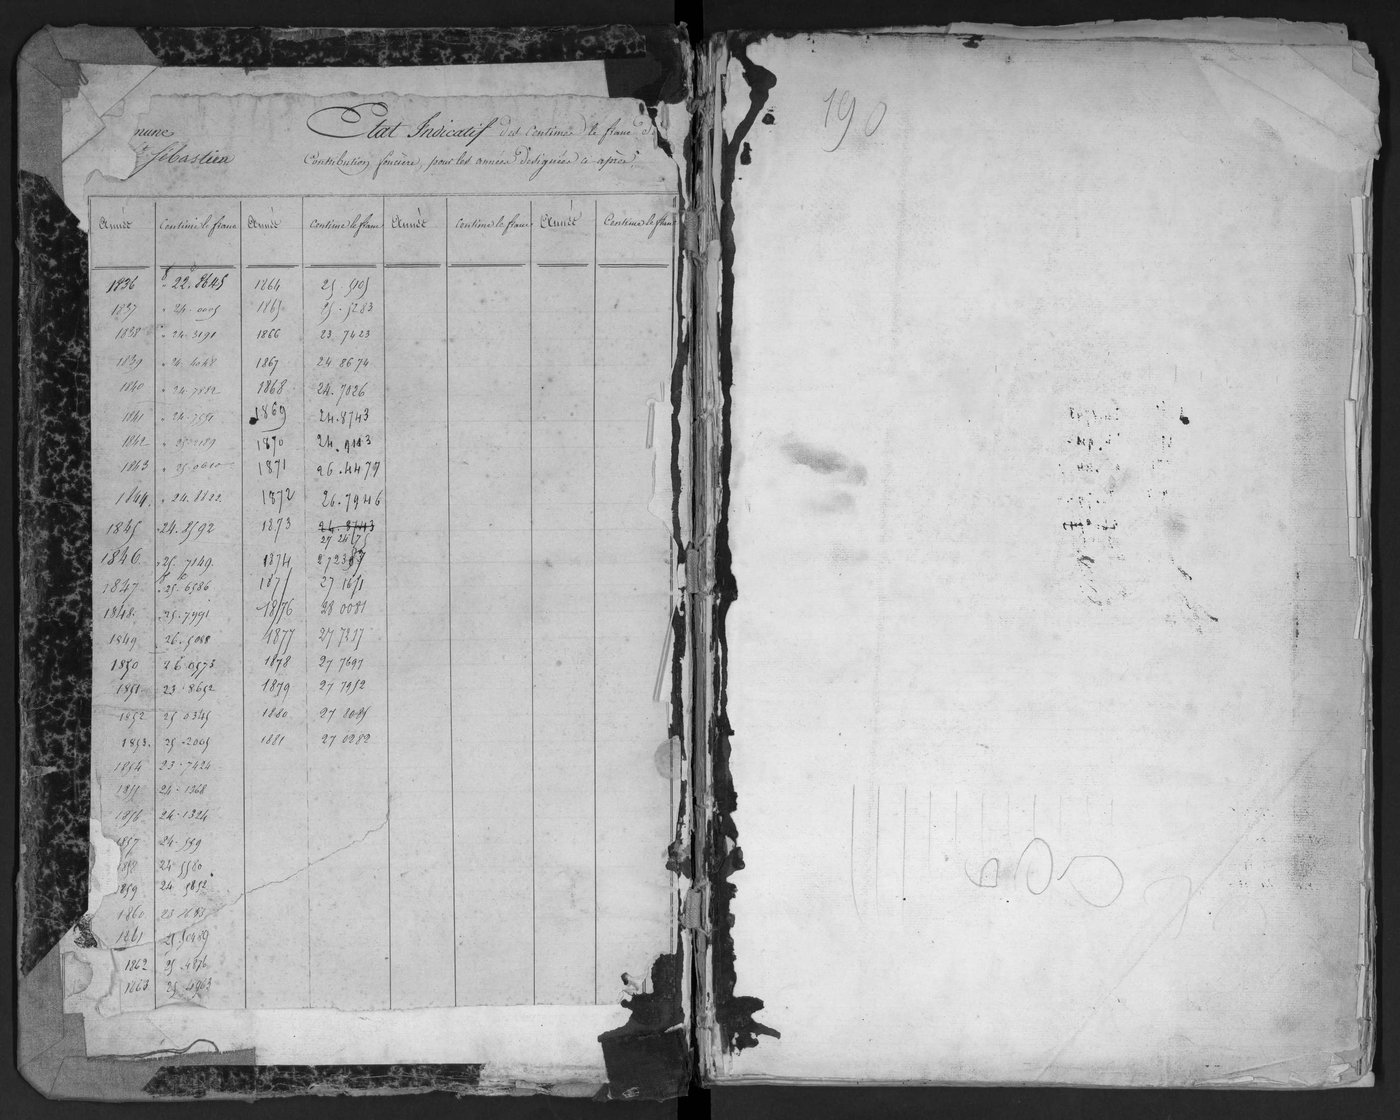 mune Etat Indicatif des centimes le franc de
St Sébastien Contribution foncière, pour les années désignées ci après.
Année Centime le franc Année Centime le franc Année Centime le franc Année Centime le franc
1836 22.8645 1864 25.5105
1837 24.0005 1865 25.5283
1838 24.3191 1866 23.7423
1839 24.4048 1867 24 8674
1840 1868 24.7026
1841 1869 24.8743
1842 1870
1843 1871 26.4479
1844. 24.8822 1872 26.7946
1845 24.8592 1873 26.8743
27 2475
1846 25.7149 1874
1847 25.6586 1875 27 1651
1848 25.7991 1876 28 0081
1849 26.5088 1877
1850 26.0573 1878 27 7697
1851 23.8652 1879 27 7952
1852 25 0345 1880 27 8085
1853. 25.2005 1881 27 0282
1854 23.7424
1855 24.1368
1856 24.1324
1857 24.559
1858 24 5580
1859 24 5852
1860
1861 25.5489
1862 25.4876
1863 25 4963
190